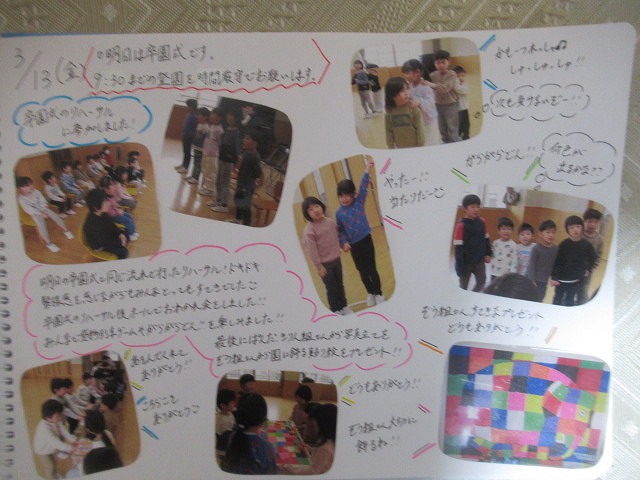 3/13(金)
○明日は卒園式です。
9:30までの登園を時間厳守でお願いします。
卒園式のリハーサル
に参加しました!
かもーつれっしゃ♫
しゅっしゅっしゅ!!
次も負けないぞー!!
やったー!!
当たりだー
がらがらどん!!
何色が
出るかな?
明日の卒園式と同じ流れで行ったリハーサル!ドキドキ
緊張感を感じながらもみんなとってもすてきでした
卒園式のリハーサル後ホールでおわかれ会をしました!!
みんなで貨物列車ゲームやがらがらどんを楽しみました!!
最後にはぞう組さんから写真立てを
ぞう組さんが園に飾る貼り絵をプレゼント!!
ぞう組さんすてきなプレゼント
どうもありがとう!!
ありがとう!!
こちらこそ
ありがとう
どうもありがとう!!
ぞう組さん大切に
飾るね!!